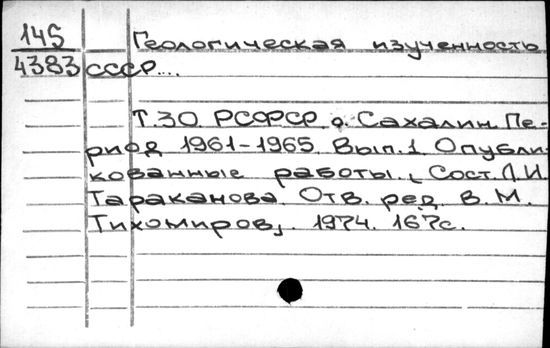 145 Геологическая изученность
4383 СССР...
Т.30. РСФСР о. Сахалин. Пе-
риод 1961-1965. Вып.1. Опубли-
кованные работы. Сост. Л.И.
Тараканова. Отв. ред. В.М.
Тихомиров, 1974. 167с.